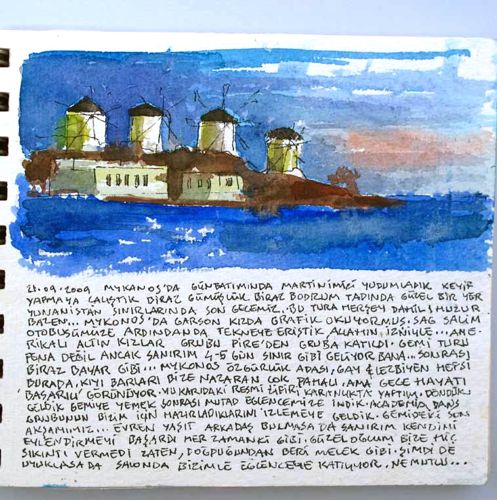 21.09.2009 MYKANOS'DA GÜNBATIMINDA MARTİNİMİZİ YUDUMLADIK KEYİF
YAPMAYA ÇALIŞTIK BİRAZ GÜMÜŞLÜK BİRAZ BODRUM TADINDA GÜZEL BİR YER
YUNANİSTAN SINIRLARINDA SON GECEMİZ. BU TURA HERŞEY DAHİL HUZUR
BAZEN... MYKONOS'DA GARSON KIZDA GRAFİK OKUYORMUŞ. SAĞ SALİM
OTOBÜSÜMÜZE ARDINDANDA TEKNEYE ERİŞTİK ALLAHIN, İZNİYLE... AME-
RİKALI ALTIN KIZLAR GRUBU PİRE'DEN GRUBA KATILDI. GEMİ TURU
FENA DEĞİL ANCAK SANIRIM 4-5 GÜN SINIR GİBİ GELİYOR BANA... SONRASI
BİRAZ DAYAR GİBİ... MYKONOS ÖZGÜRLÜK ADASI, GAY & LEZBİYEN HEPSİ
BURADA, KIYI BARLARI BİZE NAZARAN ÇOK PAHALI. AMA GECE HAYATI
BAŞARILI GÖRÜNÜYOR. YUKARDAKİ RESMİ ZİFİRİ KARANLIKTA YAPTIM, DÖNDÜK
GELDİK GEMİYE YEMEK SONRASI MUTAD EĞLENCEMİZE İNDİK. AKADEMİA DANS
GRUBUNUN BİZİM İÇİN HAZIRLADIKLARINI İZLEMEYE GELDİK. GEMİDEKİ SON
AKŞAMIMIZ... EVREN YAŞIT ARKADAŞ BULMASA DA SANIRIM KENDİNİ
EYLENDİRMEYİ BAŞARDI HER ZAMANKİ GİBİ. GÜZEL OĞLUM BİZE HİÇ
SIKINTI VERMEDİ ZATEN, DOĞDUĞUNDAN BERİ MELEK GİBİ. ŞİMDİ DE
UYUKLASA DA SALONDA BİZİMLE EĞLENCEYE KATILIYOR. NE MUTLU...